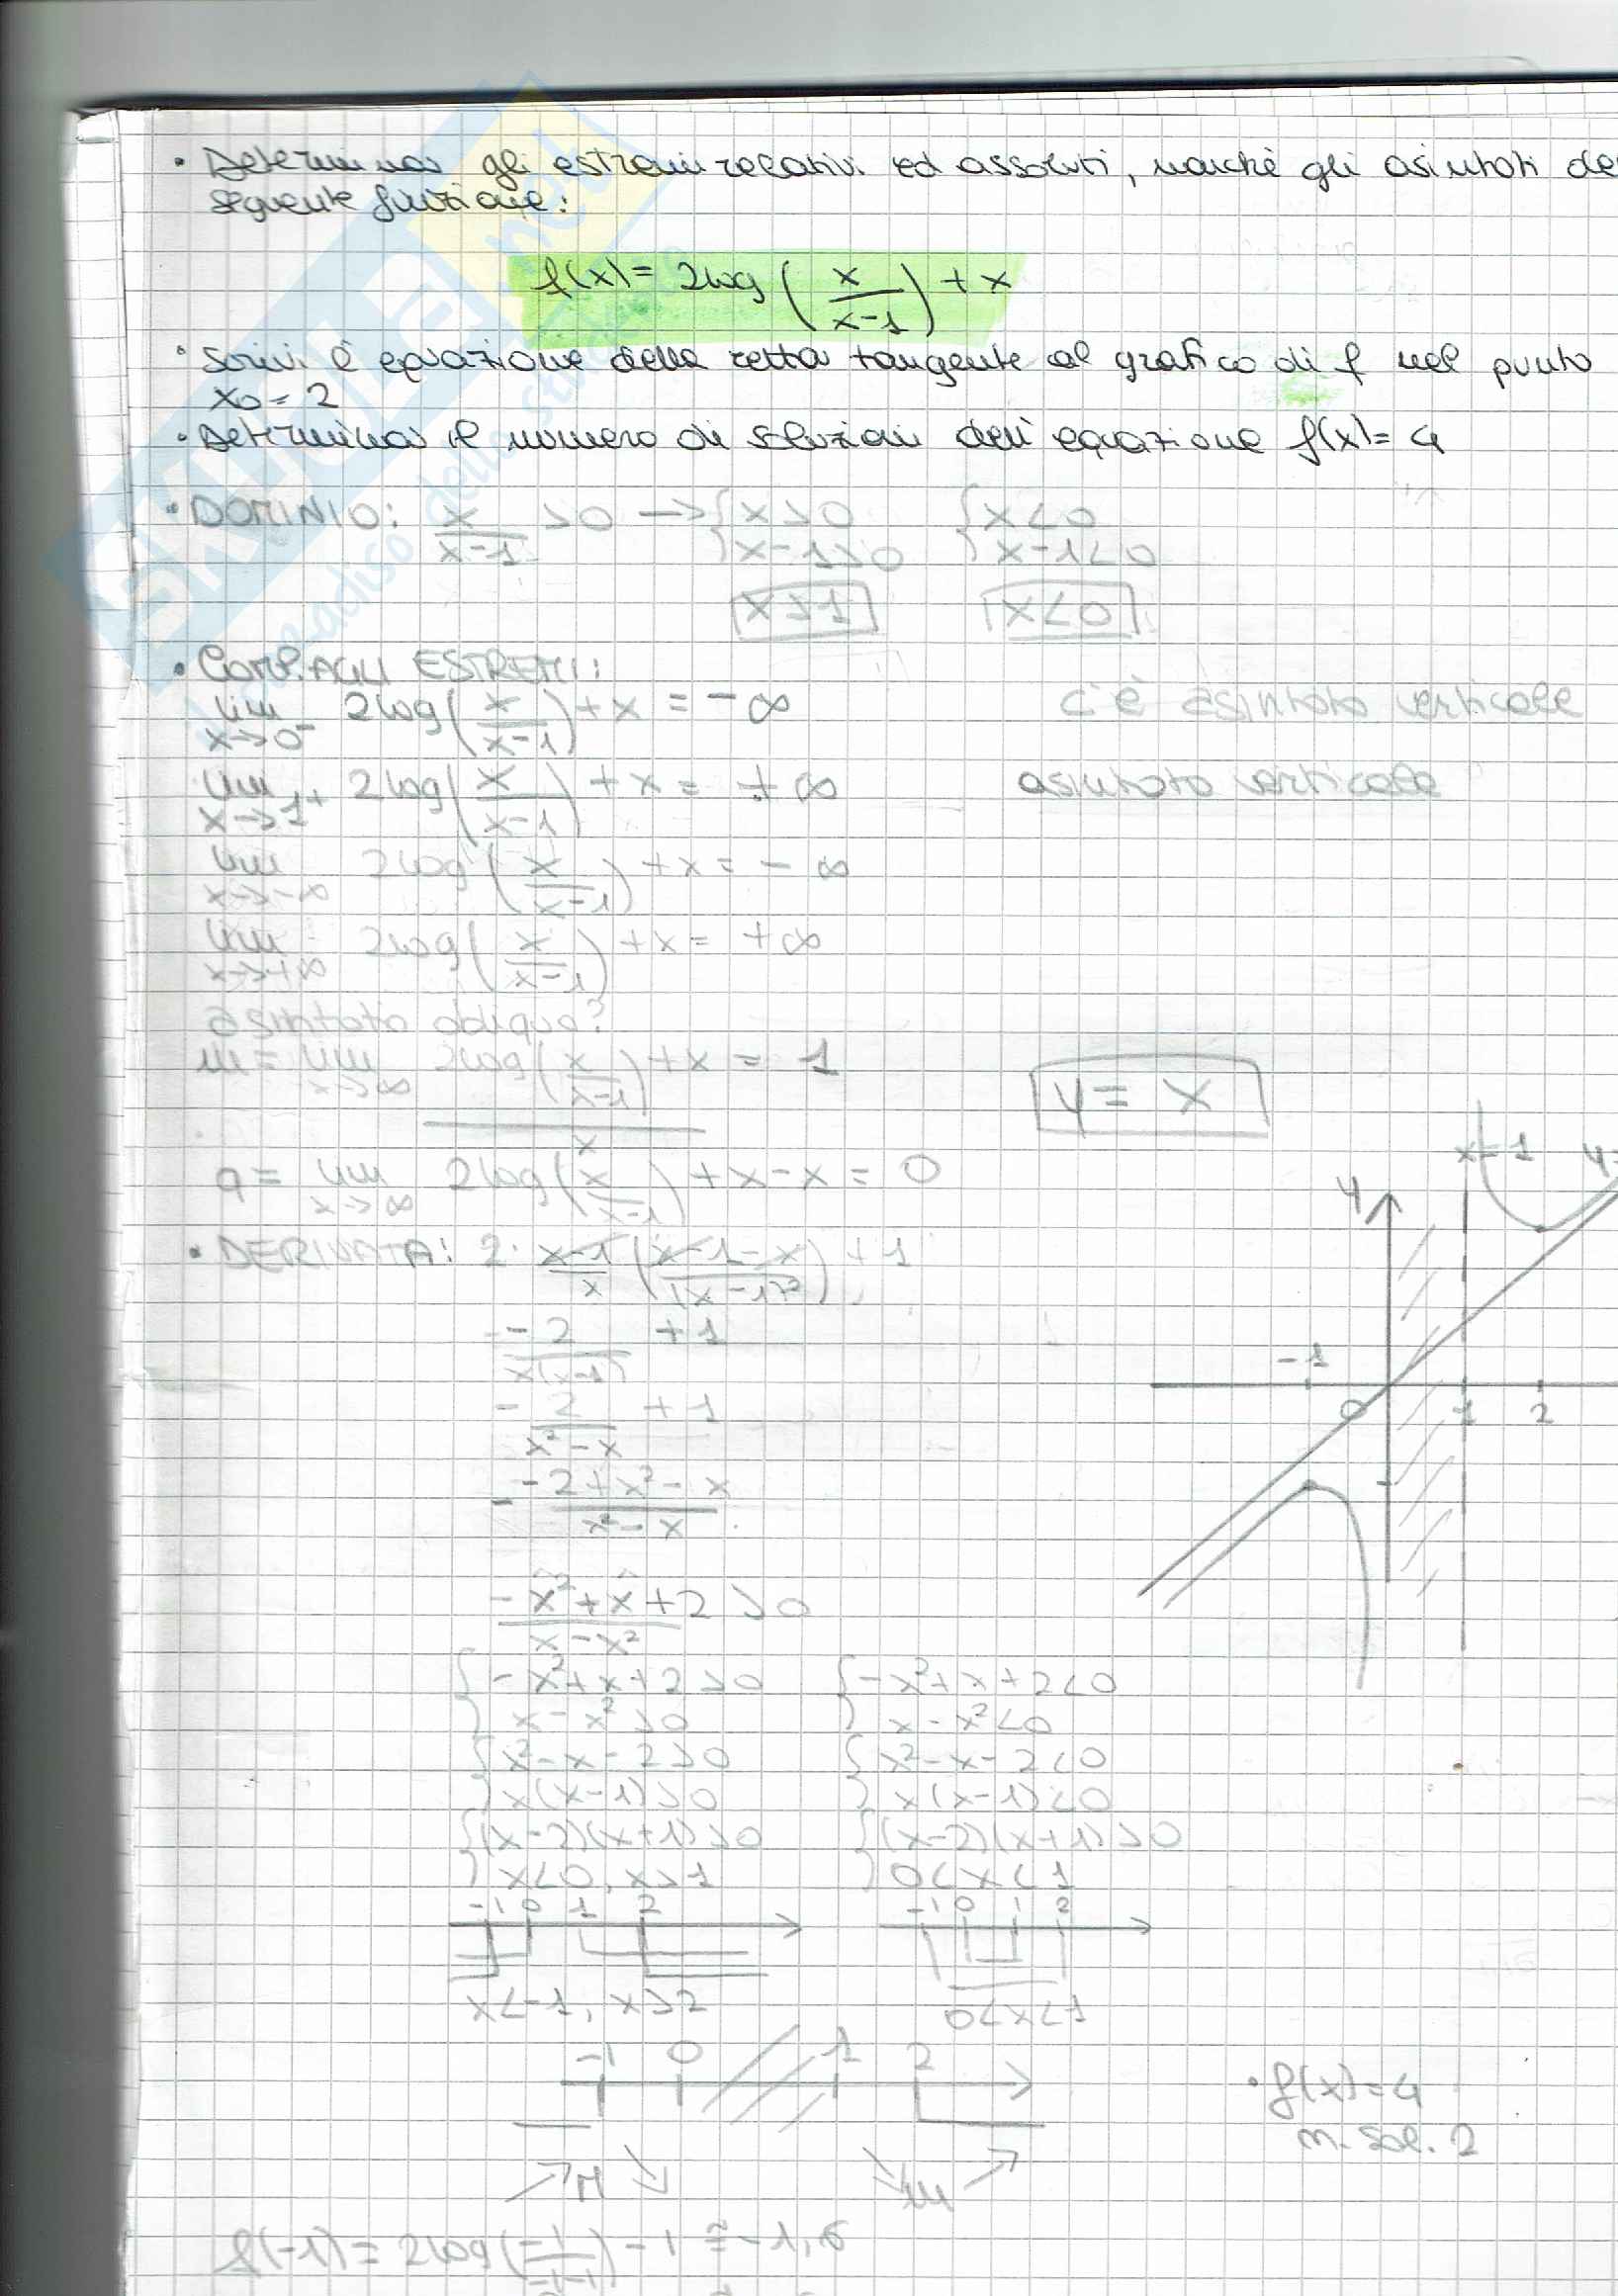 • Determina gli estremi relativi ed assoluti, nonché gli asintoti de
seguente funzione:
f(x) = 2log (x/(x-1)) + x
• Scrivi l'equazione della retta tangente al grafico di f nel punto
x0 = 2
• Determina il numero di soluzioni dell'equazione f(x) = 4
• DOMINIO: x/(x-1) >0 → {x>0 {x<0
{x-1>0 {x-1<0
x>1 x<0
• COMP. AGLI ESTREMI:
lim x→0⁻ 2log(x/(x-1)) + x = -∞ c'è asintoto verticale
lim x→1⁺ 2log(x/(x-1)) + x = +∞ asintoto verticale
lim x→-∞ 2log(x/(x-1)) + x = -∞
lim x→+∞ 2log(x/(x-1)) + x = +∞
asintoto obliquo?
m = lim x→∞ (2log(x/(x-1)) + x)/x = 1
y = x
q = lim x→∞ 2log(x/(x-1)) + x - x = 0
x=1 y=
y
-1
0 1 2
• DERIVATA: 2· (x-1)/x ((x-1-x)/(x-1)²) + 1
-2/(x(x-1)) + 1
- 2/(x²-x) + 1
- (-2+x²-x)/(x²-x)
(-x²+x+2)/(x-x²) >0
{-x²+x+2>0 {-x²+x+2<0
{x-x²>0 {x-x²<0
{x²-x-2>0 {x²-x-2<0
{x(x-1)>0 {x(x-1)<0
{(x-2)(x+1)>0 {(x-2)(x+1)>0
{x<0, x>1 {0<x<1
-1 0 1 2 -1 0 1 2
x<-1, x>2 0<x<1
-1 0 1 2
• f(x)=4
n. sol. 2
M m
f(-1) = 2log(-1/(-1-1)) - 1 ≅ -1,6
SKUOLA.net